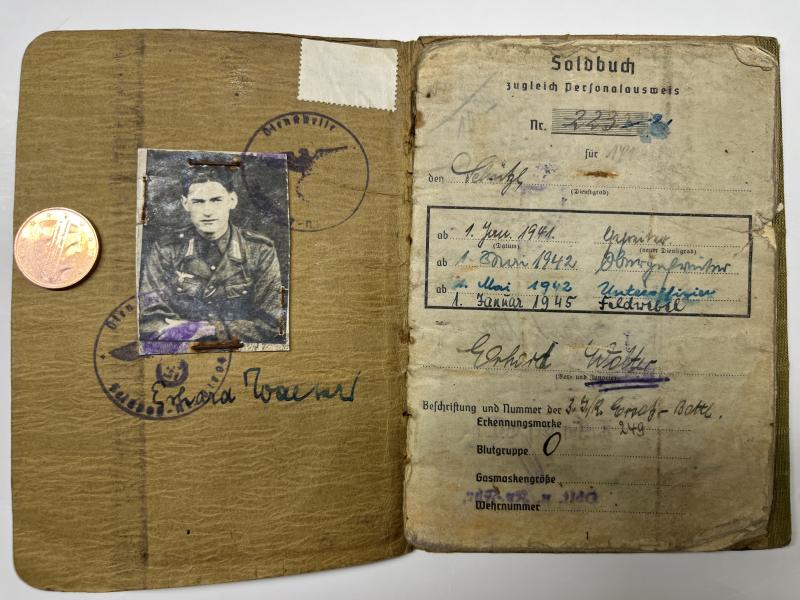 Dienststelle
Erhard Walter
Soldbuch
zugleich Personalausweis
Nr. 223
für
den Schütze
(Dienstgrad)
ab 1. Jan. 1941. Gefreiter
(Datum) (neuer Dienstgrad)
ab 1. Mai 1942 Obergefreiter
ab 1. Mai 1942 Unteroffizier
1. Januar 1945 Feldwebel
Erhard Walter
(Vor- und Zuname)
Beschriftung und Nummer der
Erkennungsmarke 249
Blutgruppe O
Gasmaskengröße
Wehrnummer
1